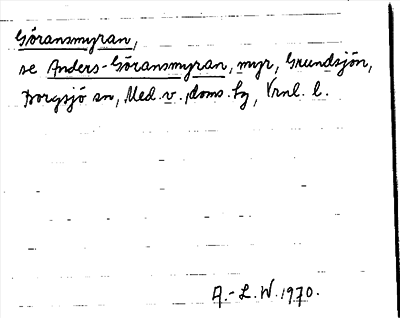 Göransmyran,
se Anders-Göransmyran, myr, Grundsjön,
Borgsjö sn, Med. v. doms. hg, Vrnl. l.
A.-L. W. 1970.